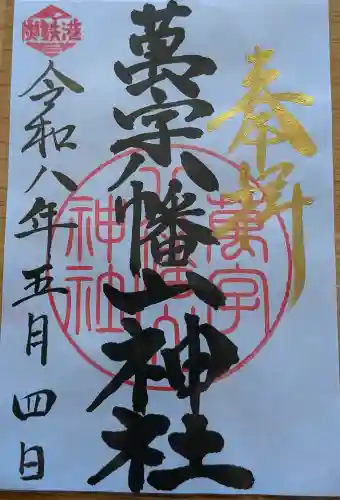 奉拝
萬字八幡山神社
令和八年五月四日
萬字
八幡山
神社